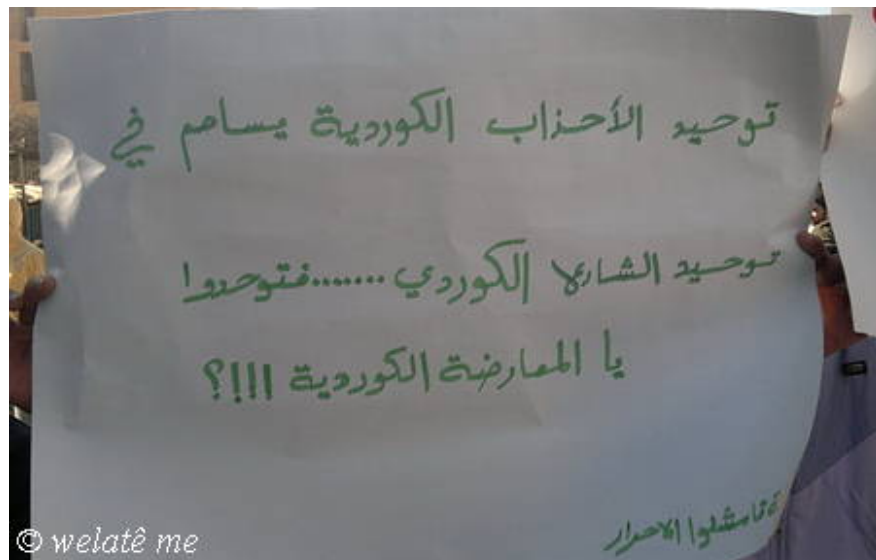 توحيد الأحزاب الكوردية يساهم في
توحيد الشارع الكوردي.......فتوحدوا
يا المعارضة الكوردية !!!؟
الاحرار
© welatê me